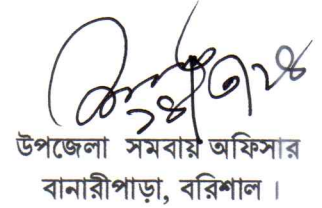 উপজেলা সমবায় অফিসার
বানারীপাড়া, বরিশাল ।